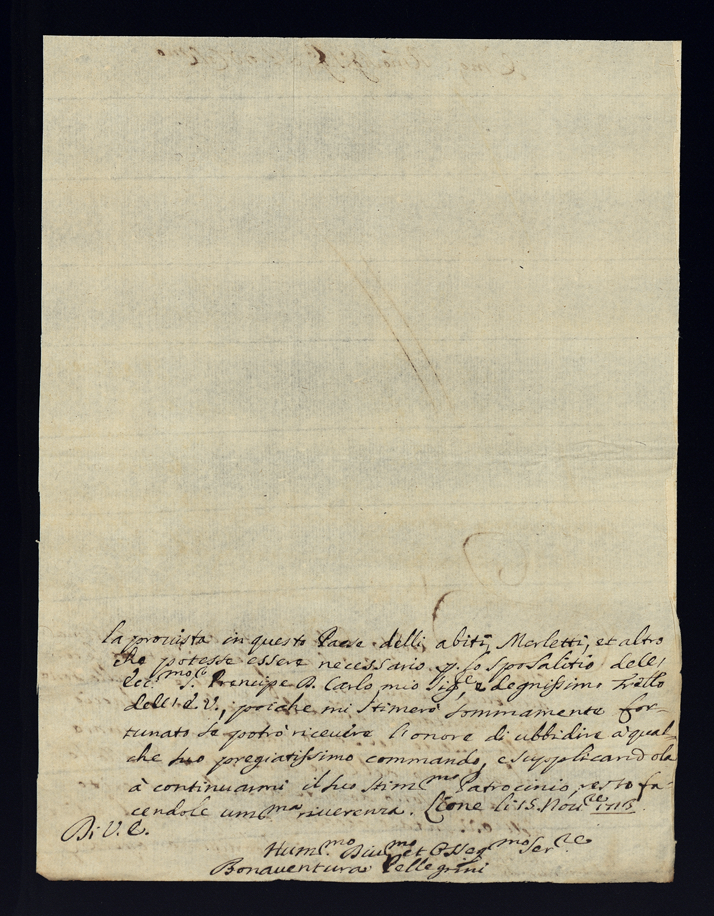 la provista in questo Paese delli abiti, Merletti, et altro
che potesse essere necessario p. lo sposalitio dell'
Ecc.mo S. Prencipe D. Carlo mio Sig.re, e degnissimo Frãllo
dell'E.V., poiche mi stimerò sommamente for-
tunato se potrò ricevere l'onore di ubbidire à qual-
che suo pregiatissimo commando, e supplicandola
à continuarmi il suo stim.mo Patrocinio, resto fa-
cendole um.ma riverenza. Lione li 15. Nov.re
Di V.E.
Hum.mo Div.mo et Osseq.mo Ser.re
Bonaventura Pellegrini